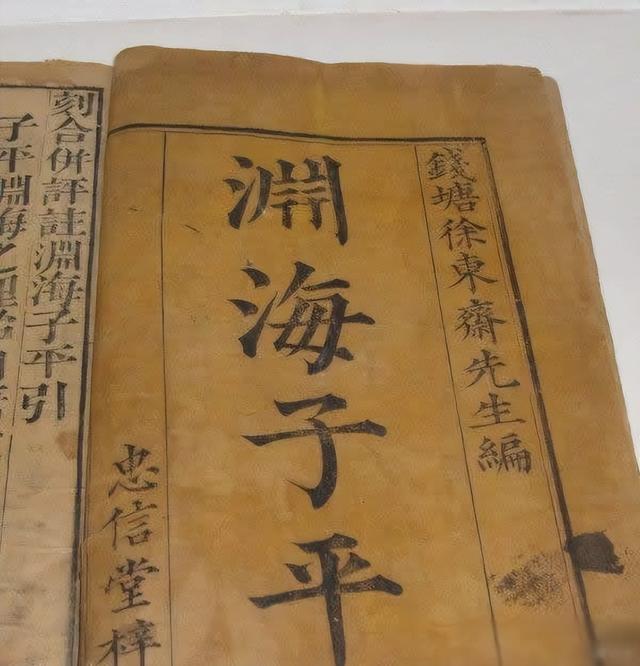 錢塘徐東齋先生編
淵海子平
忠信堂梓
刻合併評註淵海子平引
子平淵海之理